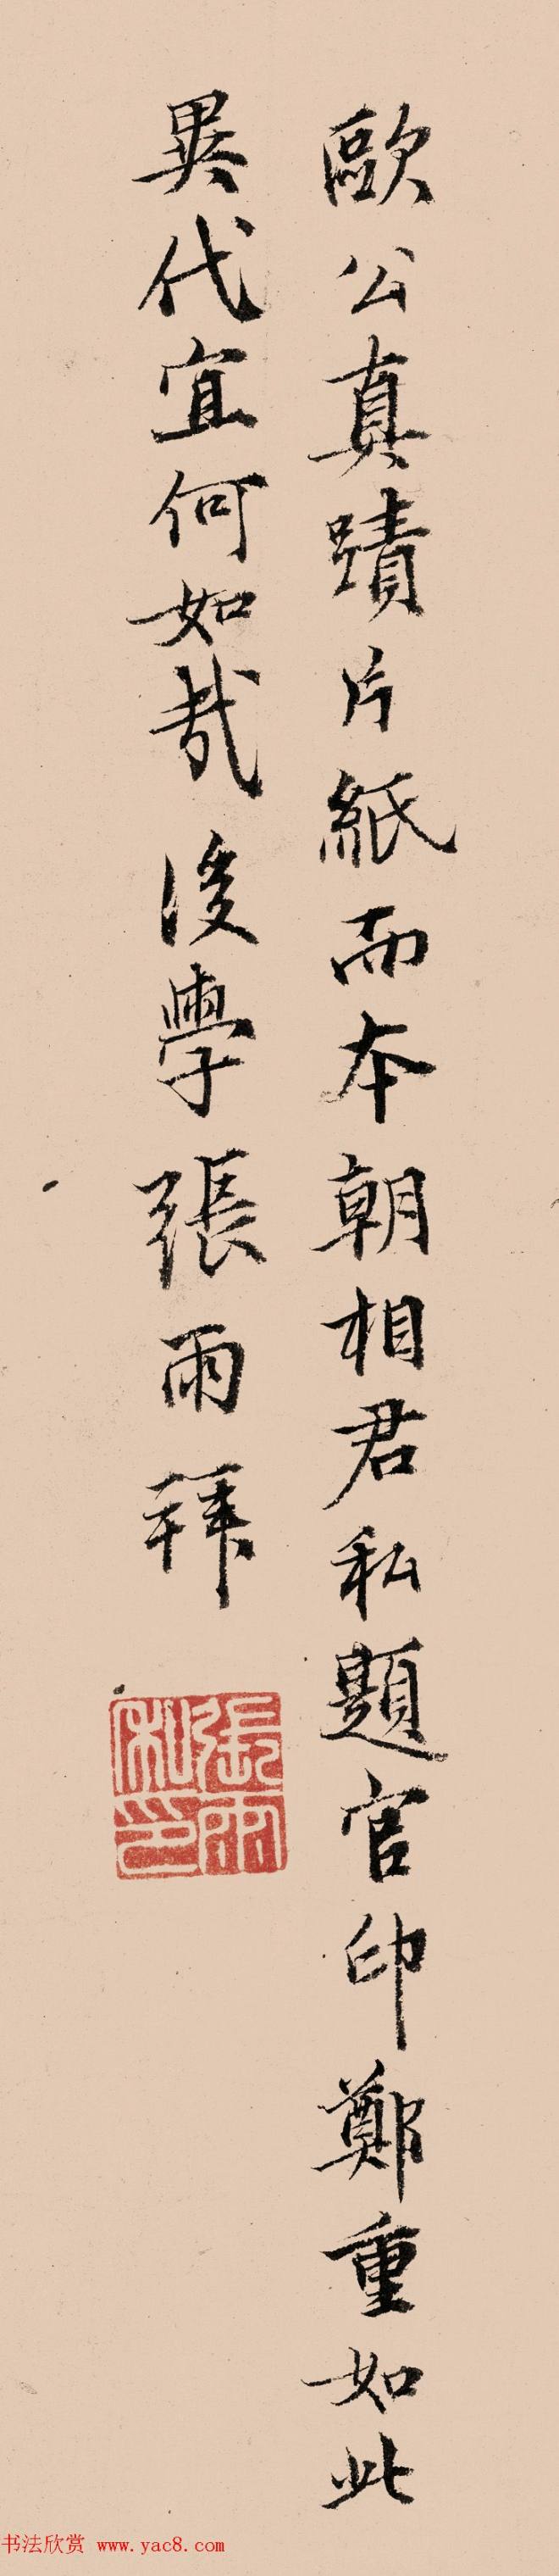 歐公真蹟片紙而本朝相君私題官印鄭重如此
異代宜何如哉後學張雨拜
張雨私印
书法欣赏 www.yac8.com